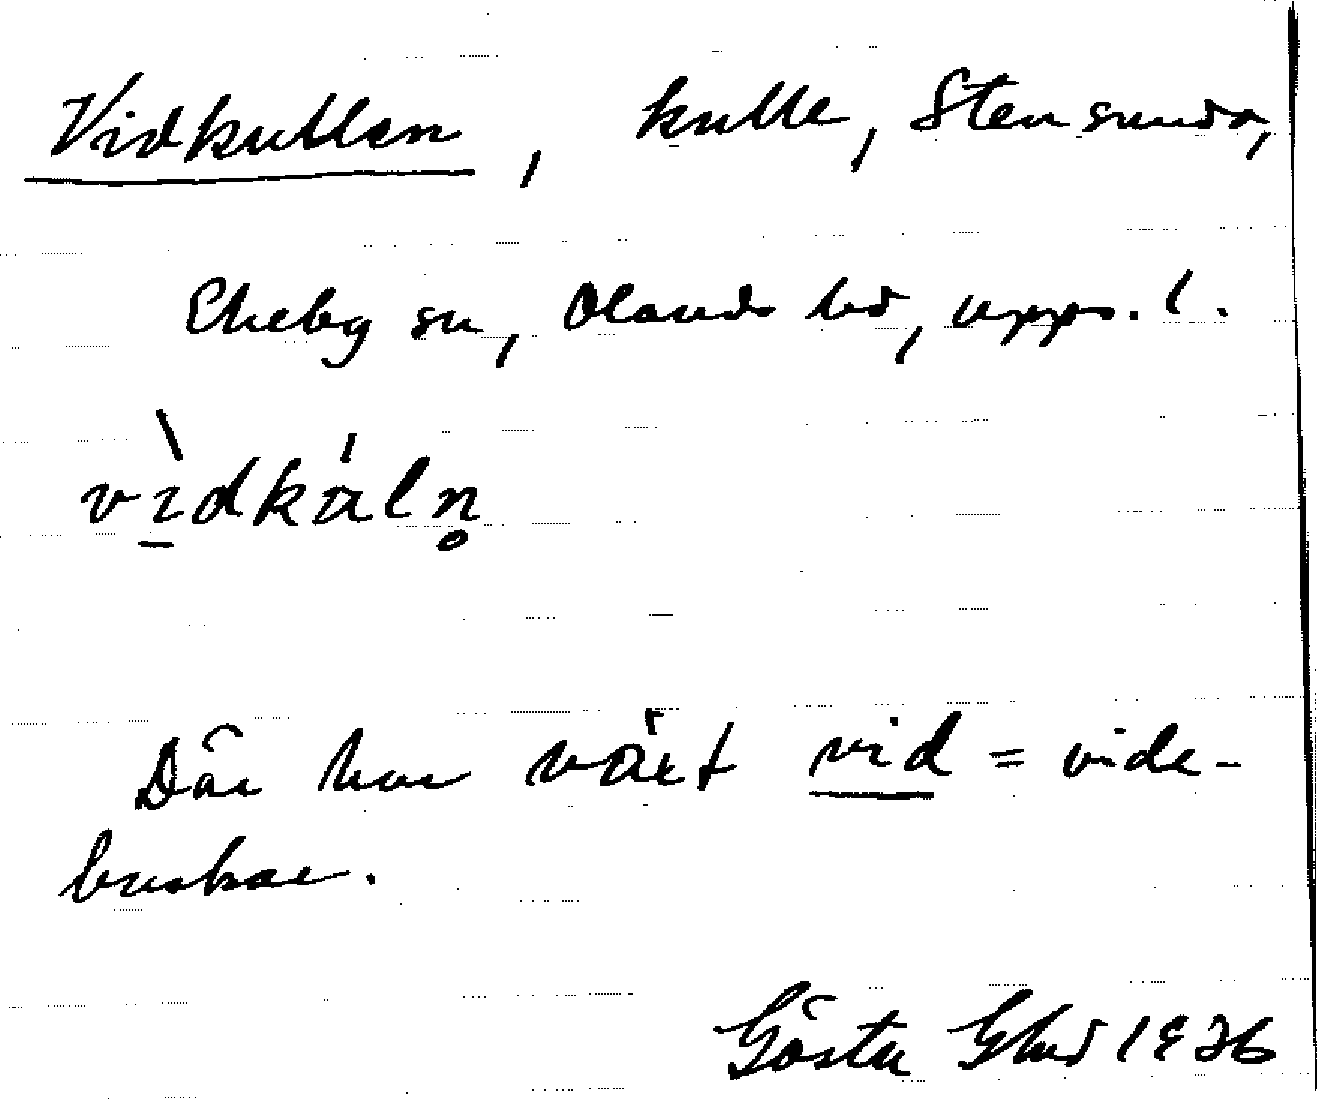 Vidkullen, kulle, Stensunda,
Ekeby sn, Olands hd, Upps. l.
vìdkáln̥
Där har växt vid = vide-
buskar.
Gösta Ehd 1936